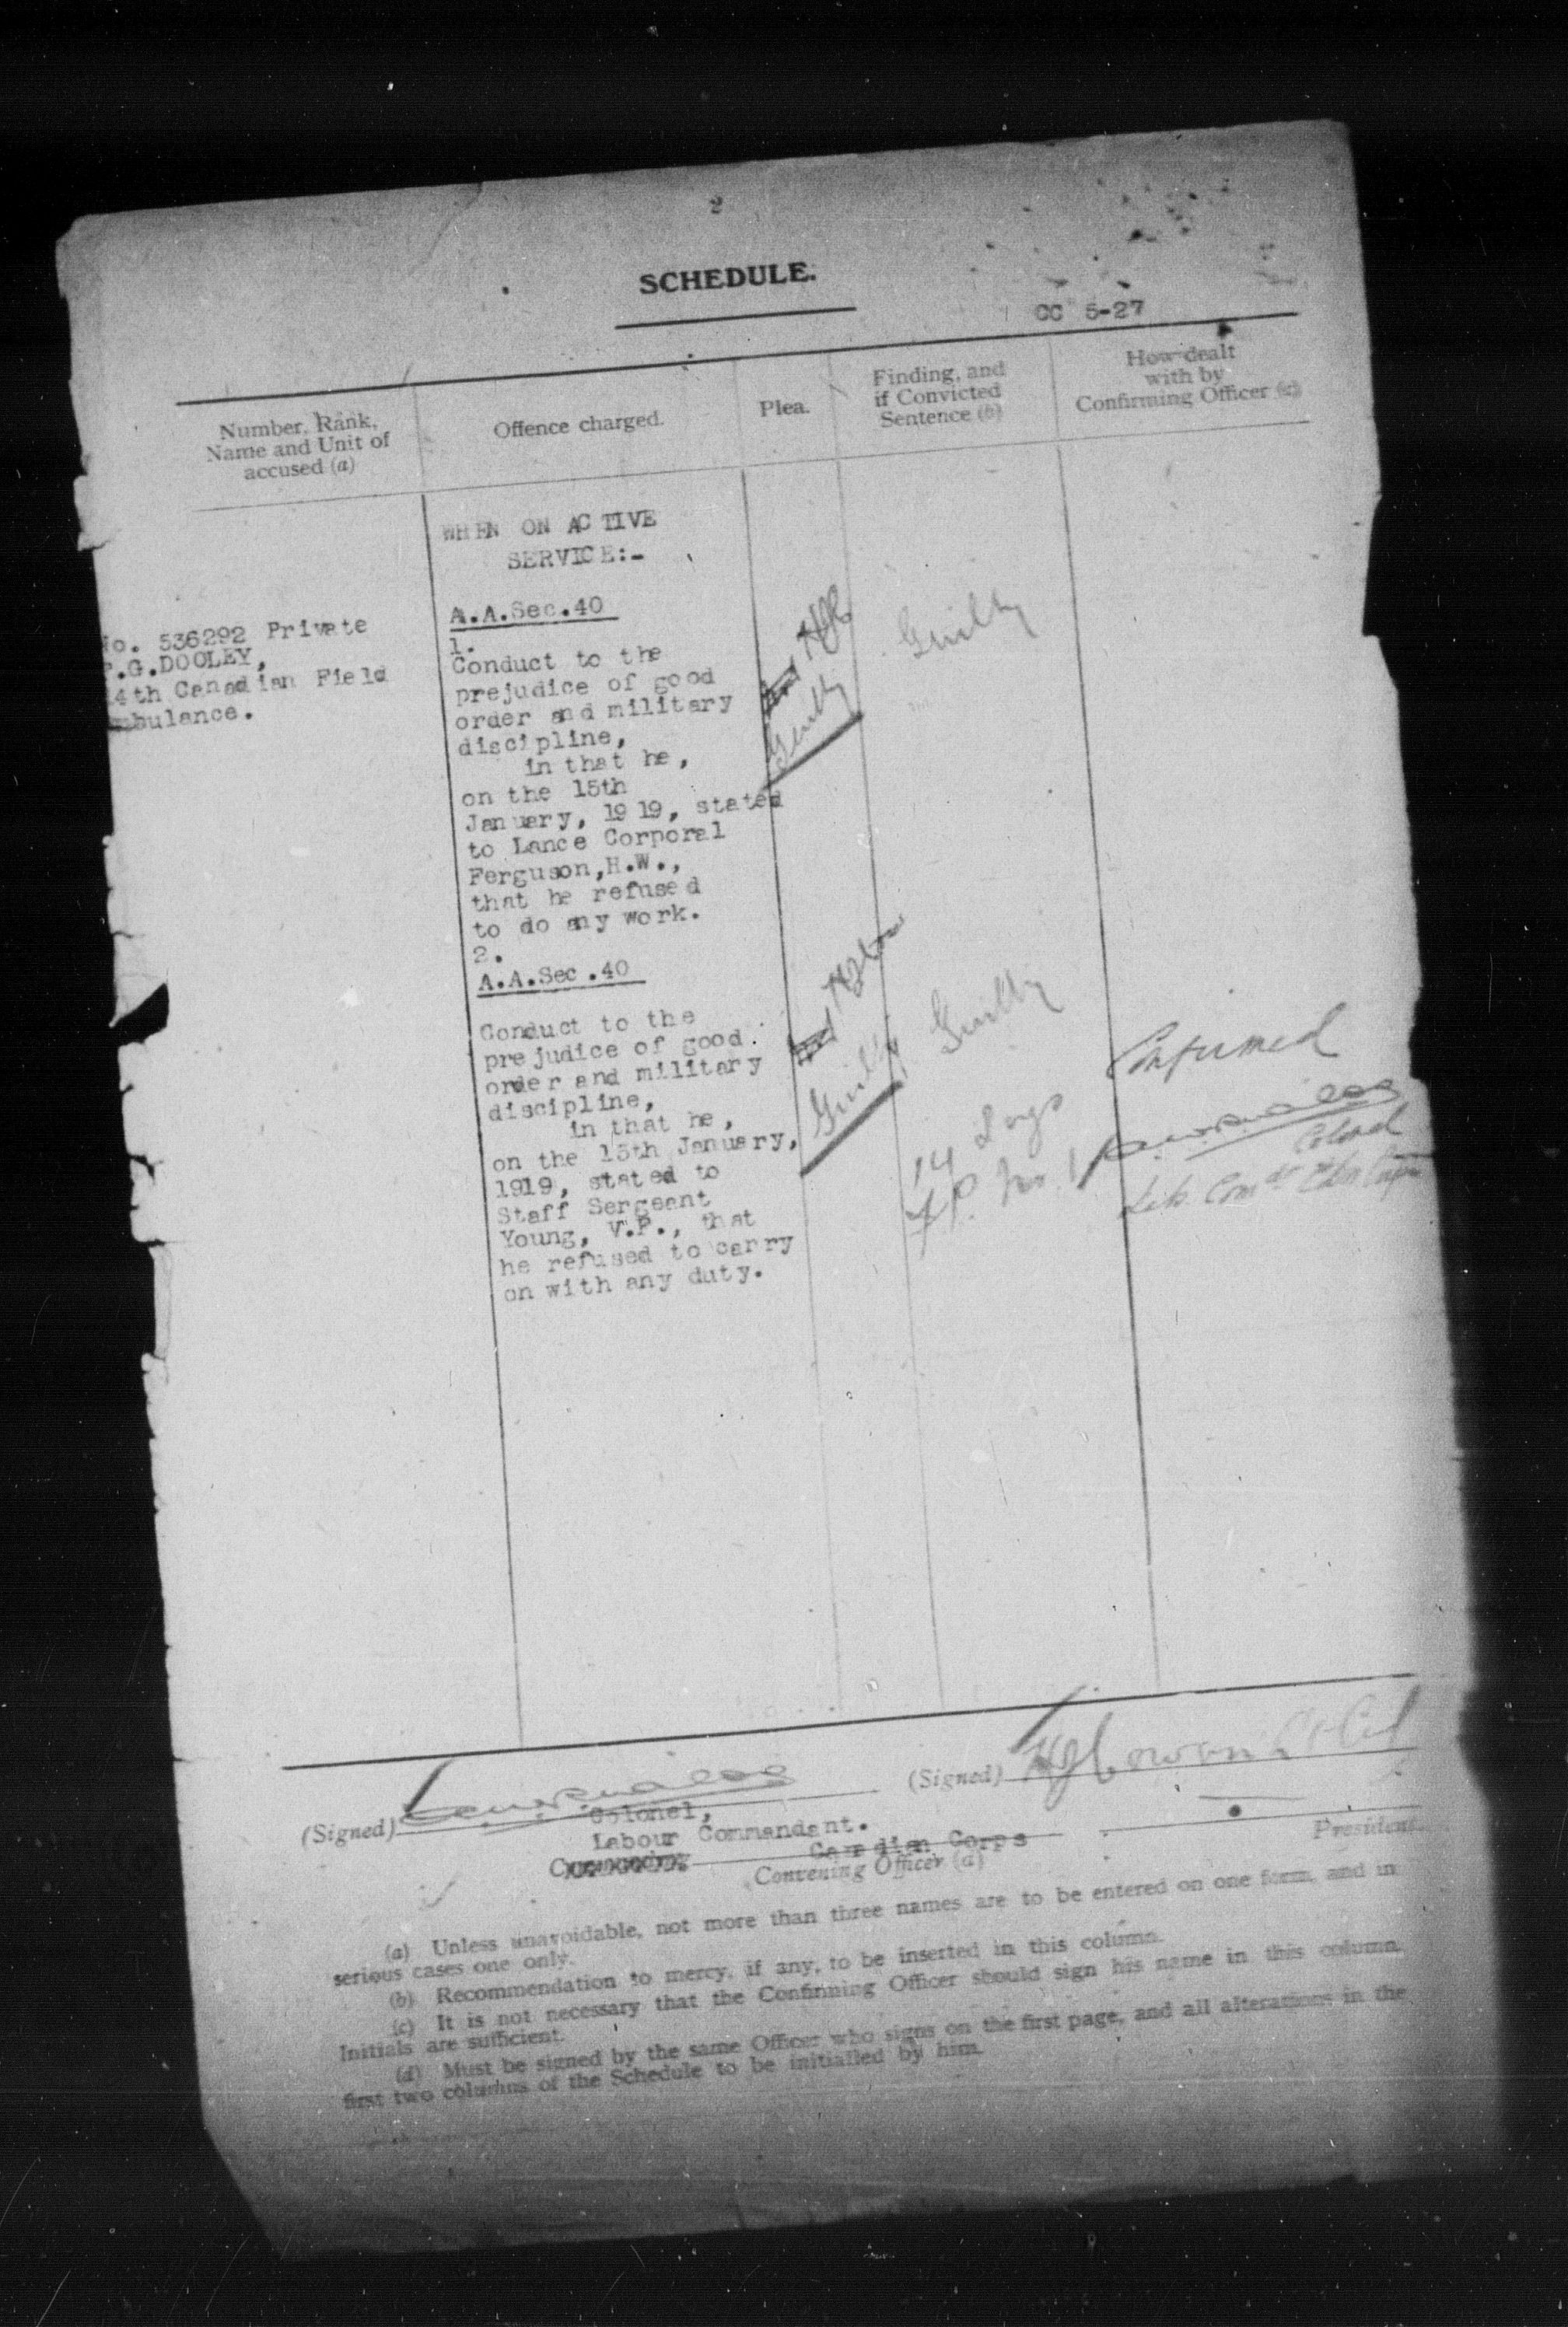 2
SCHEDULE.
CC 5-27
Number, Rank,
Name and Unit of
accused (a)
Offence charged.
Plea.
Finding, and
if Convicted
Sentence (b)
How dealt
with by
Confirming Officer (c)
WHEN ON ACTIVE
SERVICE:-
No. 536292 Private
.G.DOOLEY,
4th Canadian Field
mbulance.
A.A.Sec.40
1.
Conduct to the
prejudice of good
order and military
discipline,
in that he,
on the 15th
January, 1919, stated
to Lance Corporal
Ferguson,H.W.,
that he refused
to do any work.
2.
A.A.Sec.40
Conduct to the
prejudice of good
order and military
discipline,
in that he,
on the 15th January,
1919, stated to
Staff Sergeant
Young, V.P., that
he refused to carry
on with any duty.
Guilty
Guilty
Guilty
Guilty
14 days
F.P. No. 1
Confirmed
Colonel
(Signed)
Colonel,
Labour Commandant.
Canadian Corps
Convening Officer (d)
(Signed)
President.
(a) Unless unavoidable, not more than three names are to be entered on one form, and in
serious cases one only.
(b) Recommendation to mercy, if any, to be inserted in this column.
(c) It is not necessary that the Confirming Officer should sign his name in this column.
Initials are sufficient.
(d) Must be signed by the same Officer who signs on the first page, and all alterations in the
first two columns of the Schedule to be initialled by him.